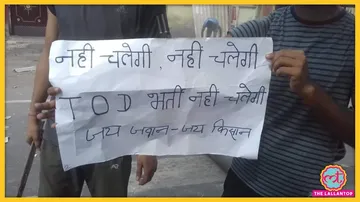 नही चलेगी, नही चलेगी
TOD भर्ती नही चलेगी
जय जवान - जय किसान
THE LALLANTOP